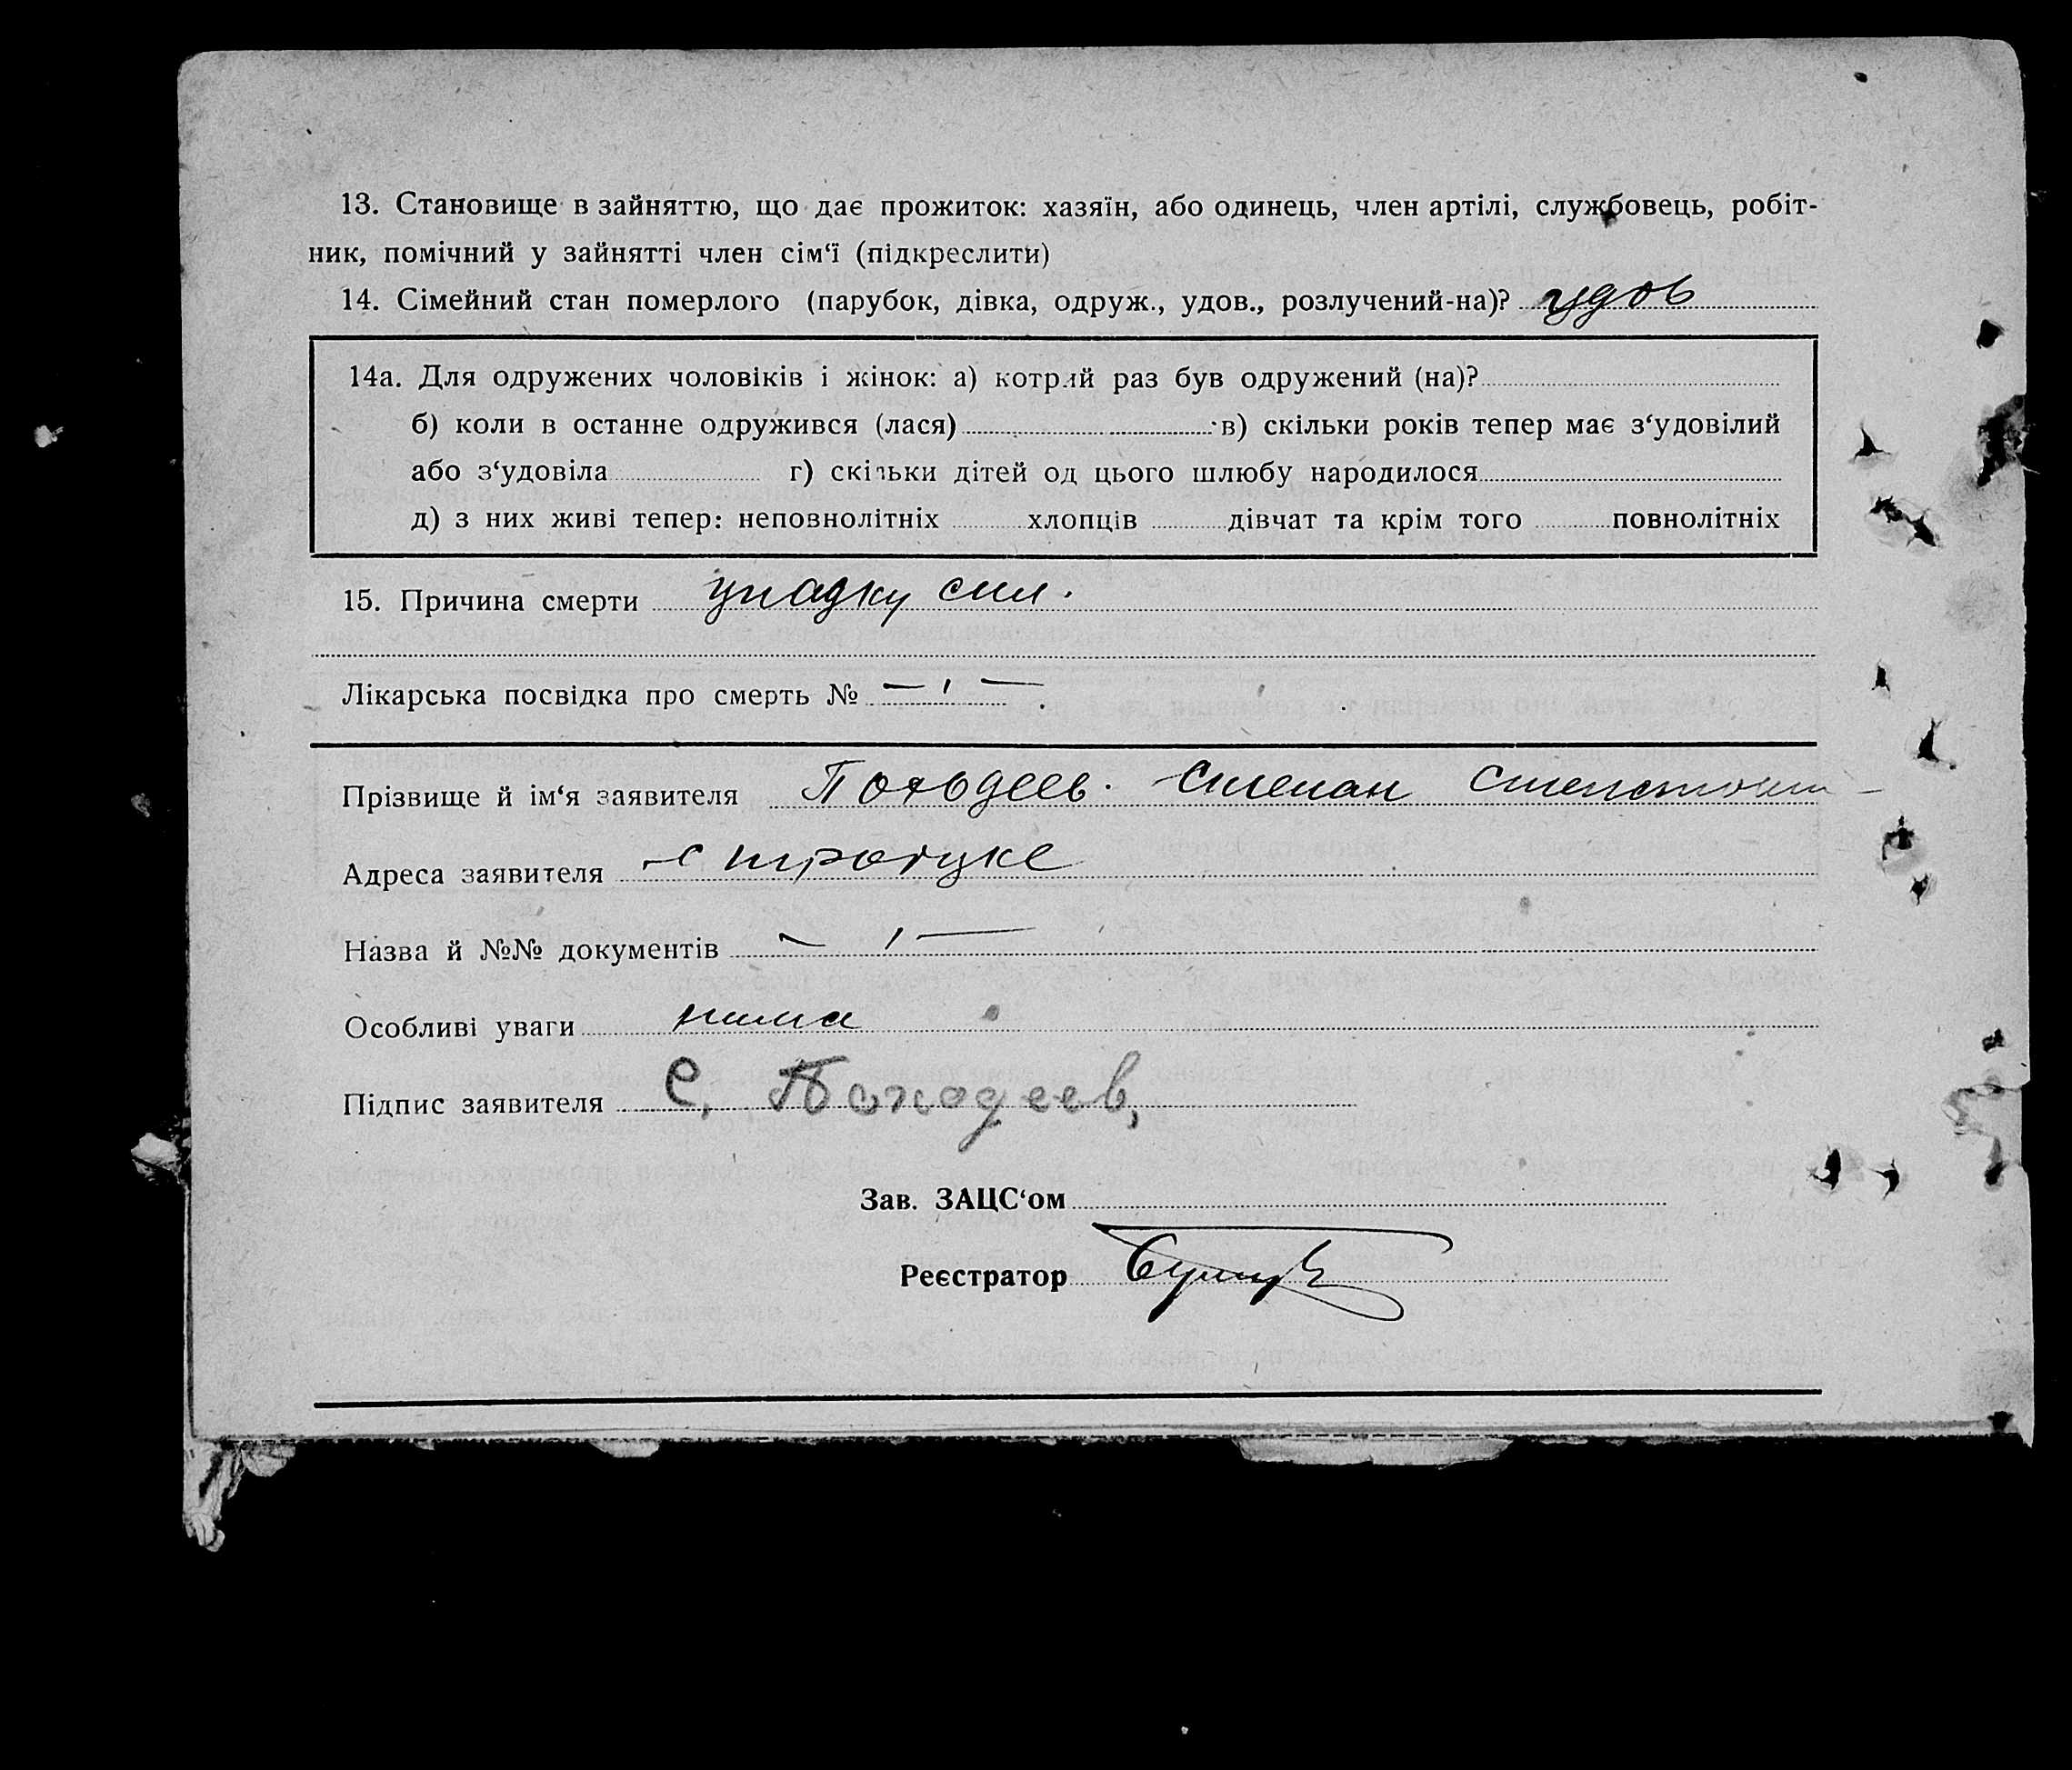 13. Становище в зайняттю, що дає прожиток: хазяїн, або одинець, член артілі, службовець, робіт-
ник, помічний у зайнятті член сім‘ї (підкреслити)
14. Сімейний стан померлого (парубок, дівка, одруж., удов., розлучений-на)? удов
14а. Для одружених чоловіків і жінок: а) котрий раз був одружений (на)?
б) коли в останне одружився (лася) в) скільки років тепер має з‘удовілий
або з‘удовіла г) скільки дітей од цього шлюбу народилося
д) з них живі тепер: неповнолітніх хлопців дівчат та крім того повнолітніх
15. Причина смерти упадку сил.
Лікарська посвідка про смерть № — ı —
Прізвище й ім‘я заявителя Степан
Адреса заявителя с троицке
Назва й №№ документів — ı —
Особливі уваги нима
Підпис заявителя С.
Зав. ЗАЦС‘ом
Реєстратор